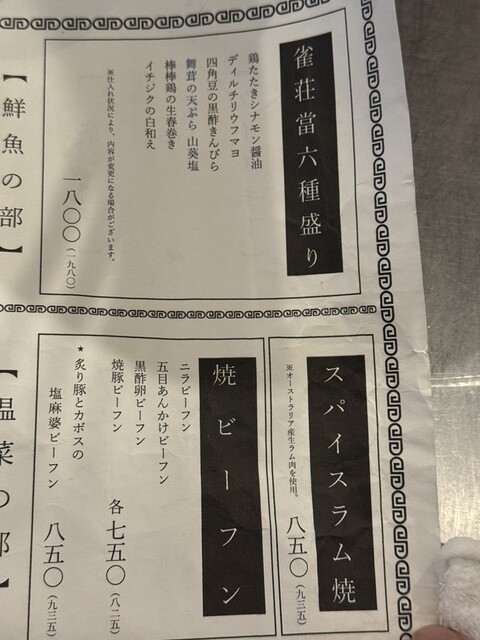 雀荘當六種盛り
鶏たたきシナモン醤油
ディルチリウフマヨ
四角豆の黒酢きんぴら
舞茸の天ぷら 山葵塩
棒棒鶏の生春巻き
イチジクの白和え
※仕入れ状況により、内容が変更になる場合がございます。
一八〇〇(一九八〇)
【鮮魚の部】
スパイスラム焼
※オーストラリア産生ラム肉を使用。
八五〇(九三五)
焼ビーフン
ニラビーフン
五目あんかけビーフン
黒酢卵ビーフン
焼豚ビーフン
各七五〇(八二五)
★炙り豚とカボスの
塩麻婆ビーフン
八五〇(九三五)
【温菜の部】